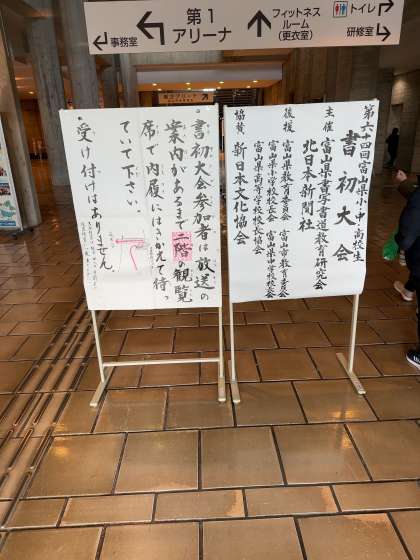 事務室
第1
アリーナ
フィットネス
ルーム
（更衣室）
トイレ
研修室
第六十四回富山県小中高校生
書初大会
主催 富山県書写書道教育研究会
北日本新聞社
後援 富山県教育委員会 富山市教育委員会
富山県小学校長会 富山県中学校長会
富山県高等学校長協会
協賛 新日本文化協会
書初大会参加者は放送の
案内があるまで二階の観覧
席で内履にはきかえて待っ
ていて下さい。
受け付けはありません。